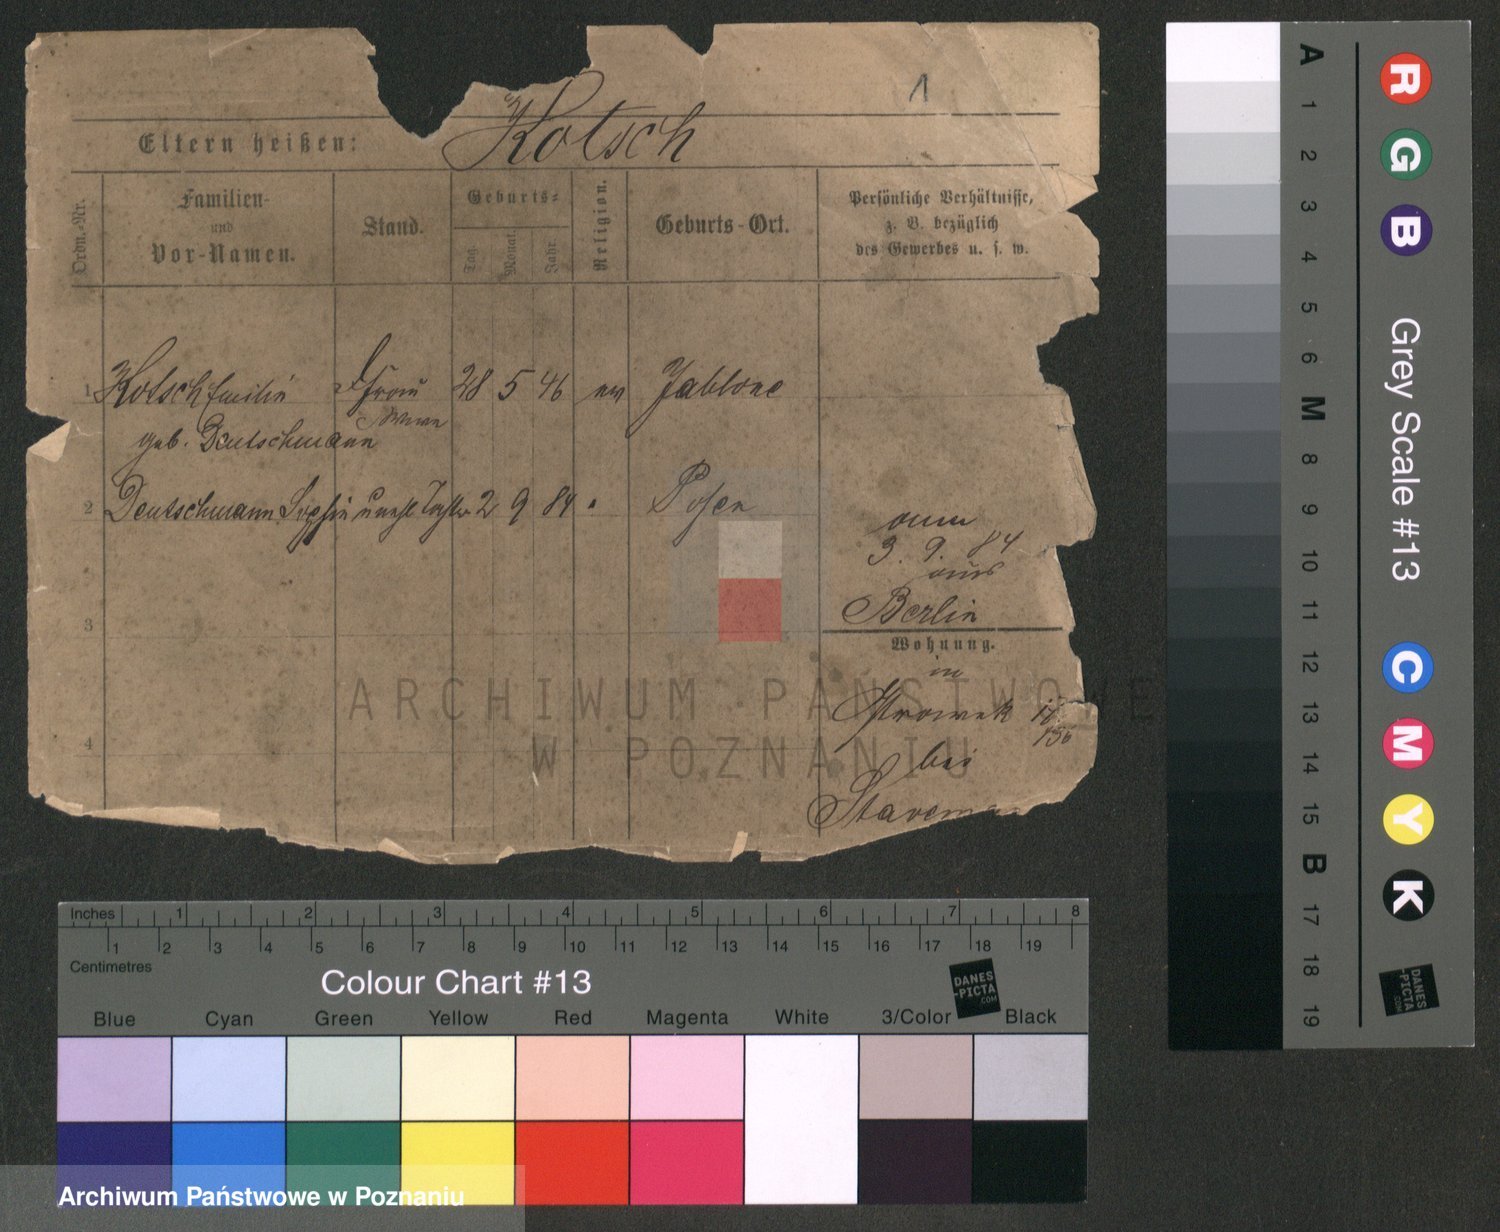 1
Kotsch
Eltern heißen:
Ordn.-Nr.
Familien-
und
Vor-Namen.
Stand.
Geburts-
Tag.
Monat.
Jahr.
Religion.
Geburts-Ort.
Persönliche Verhältnisse,
z. B. bezüglich
des Gewerbes u. s. w.
1 Kotsch Emilie Frau 28 5 46 ev Jablone
geb. Deutschmann
2 Deutschmann Sophie unehl 2 9 84 Posen
3. 9. 84
aus
Berlin
3
Wohnung.
in
Ostrowek
4
bei
ARCHIWUM PAŃSTWOWE
W POZNANIU
Inches 1 2 3 4 5 6 7 8
1 2 3 4 5 6 7 8 9 10 11 12 13 14 15 16 17 18 19
Centimetres
Colour Chart #13
DANES
-PICTA
.COM
Blue Cyan Green Yellow Red Magenta White 3/Color Black
Archiwum Państwowe w Poznaniu
A 1 2 3 4 5 6 M 8 9 10 11 12 13 14 15 B 17 18 19
R G B
Grey Scale #13
C M Y K
DANES
-PICTA
.COM